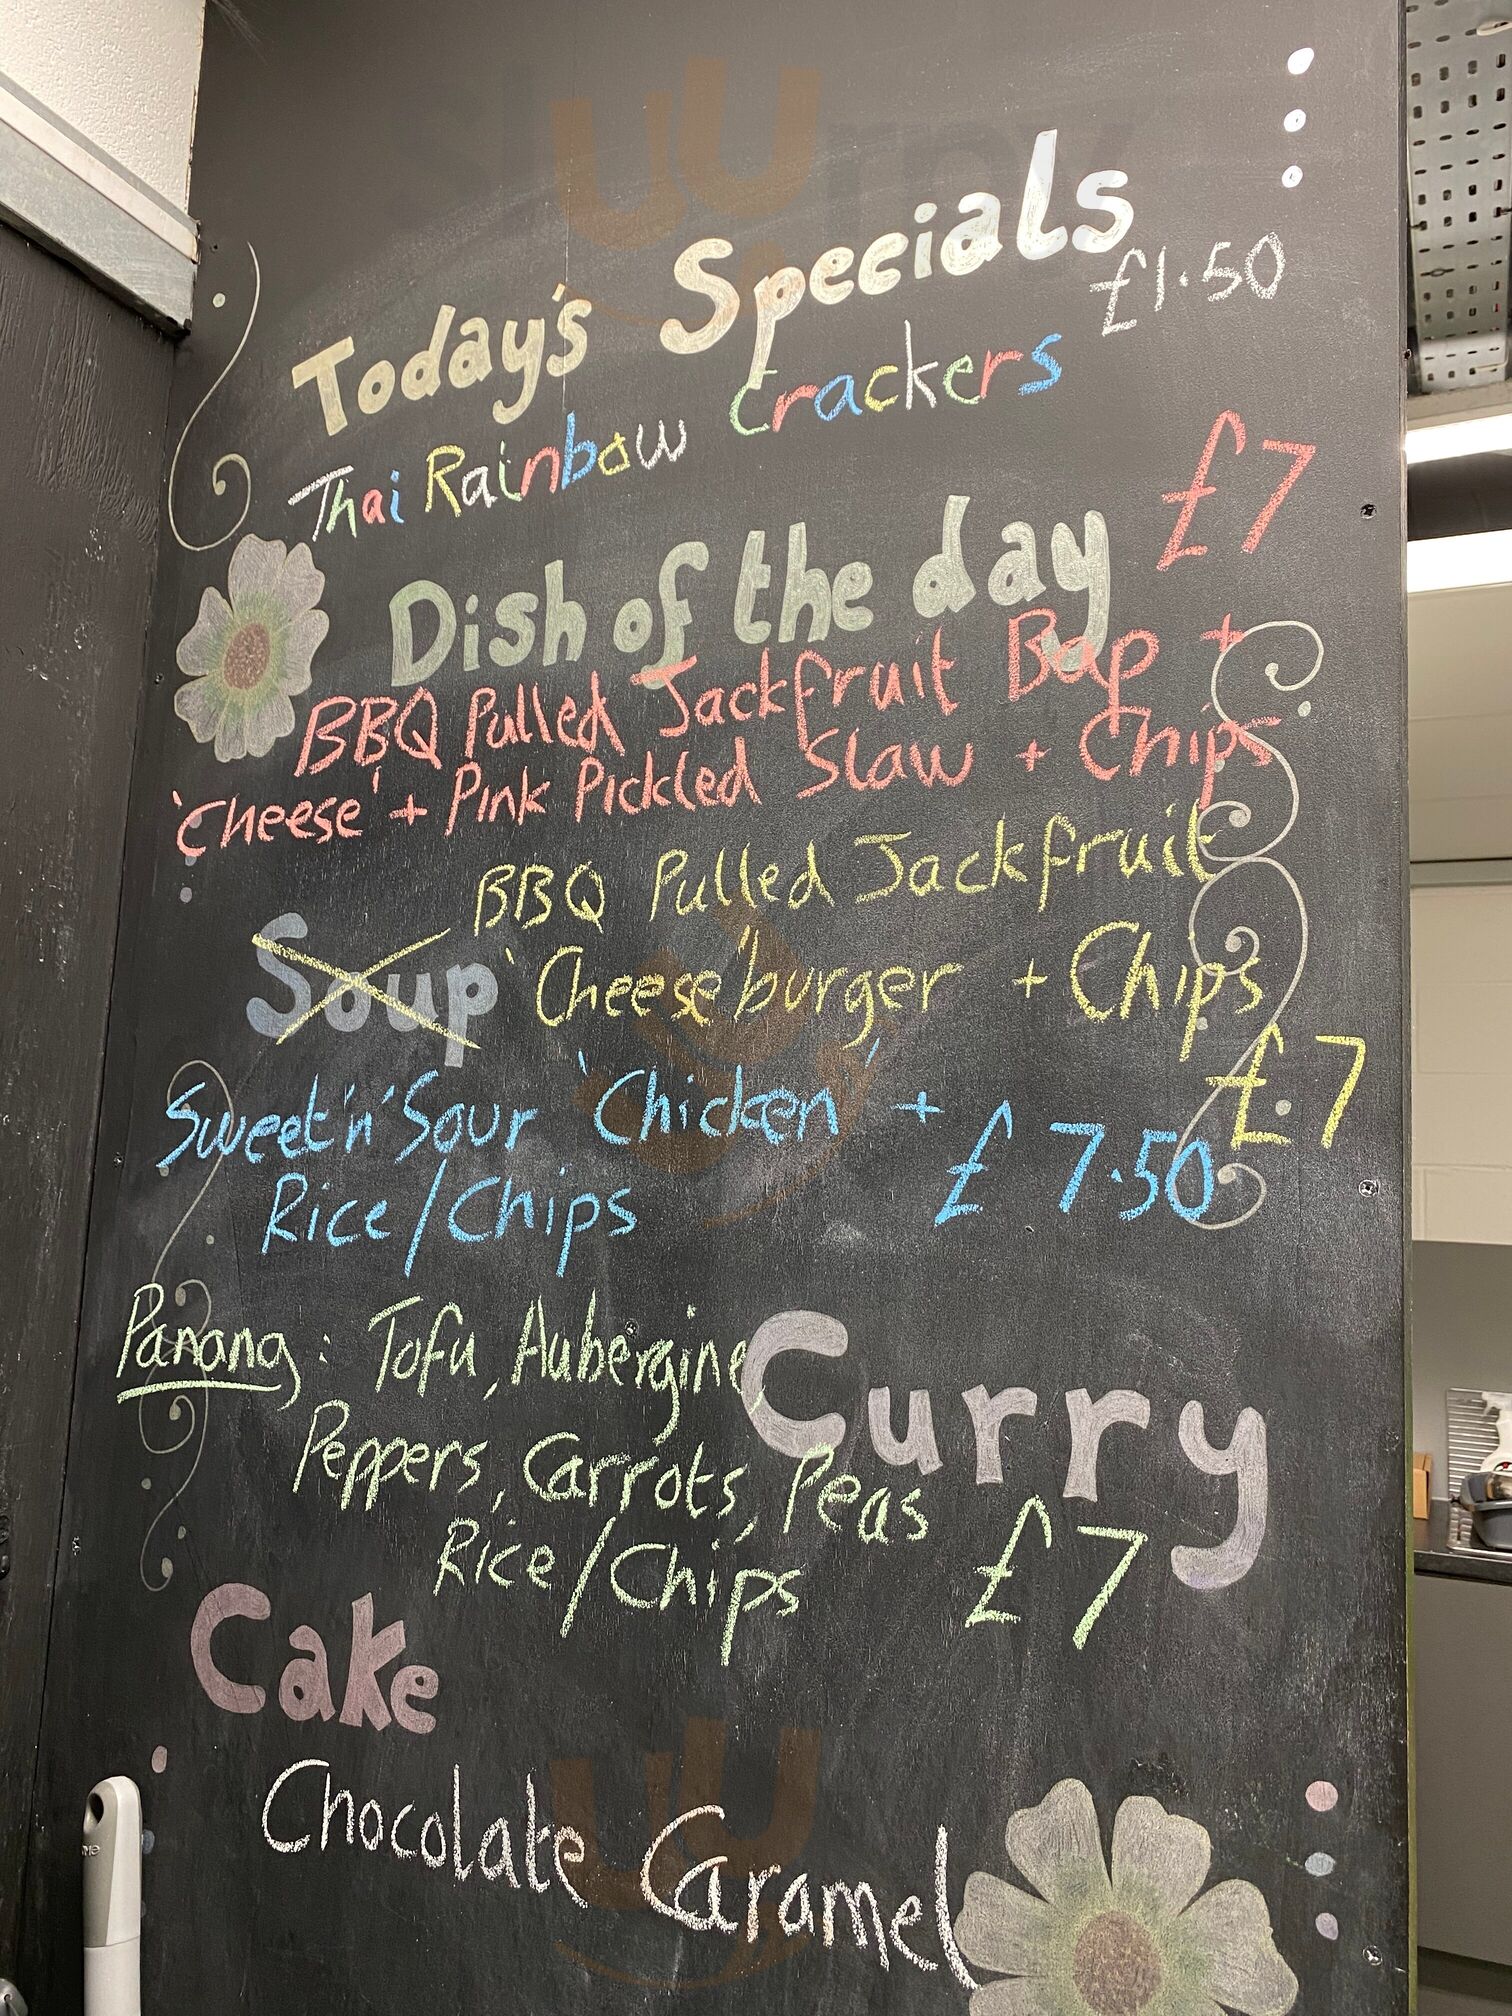 Today's Specials
£1.50
Thai Rainbow Crackers
Dish of the day £7
BBQ Pulled Jackfruit Bap +
'Cheese' + Pink Pickled Slaw + Chips
BBQ Pulled Jackfruit
Soup 'Cheese'burger + Chips
£7
Sweet'n'Sour 'Chicken' +
Rice/Chips £7.50
Panang: Tofu, Aubergine,
Curry
Peppers, Carrots, Peas
Rice/Chips £7
Cake
Chocolate Caramel